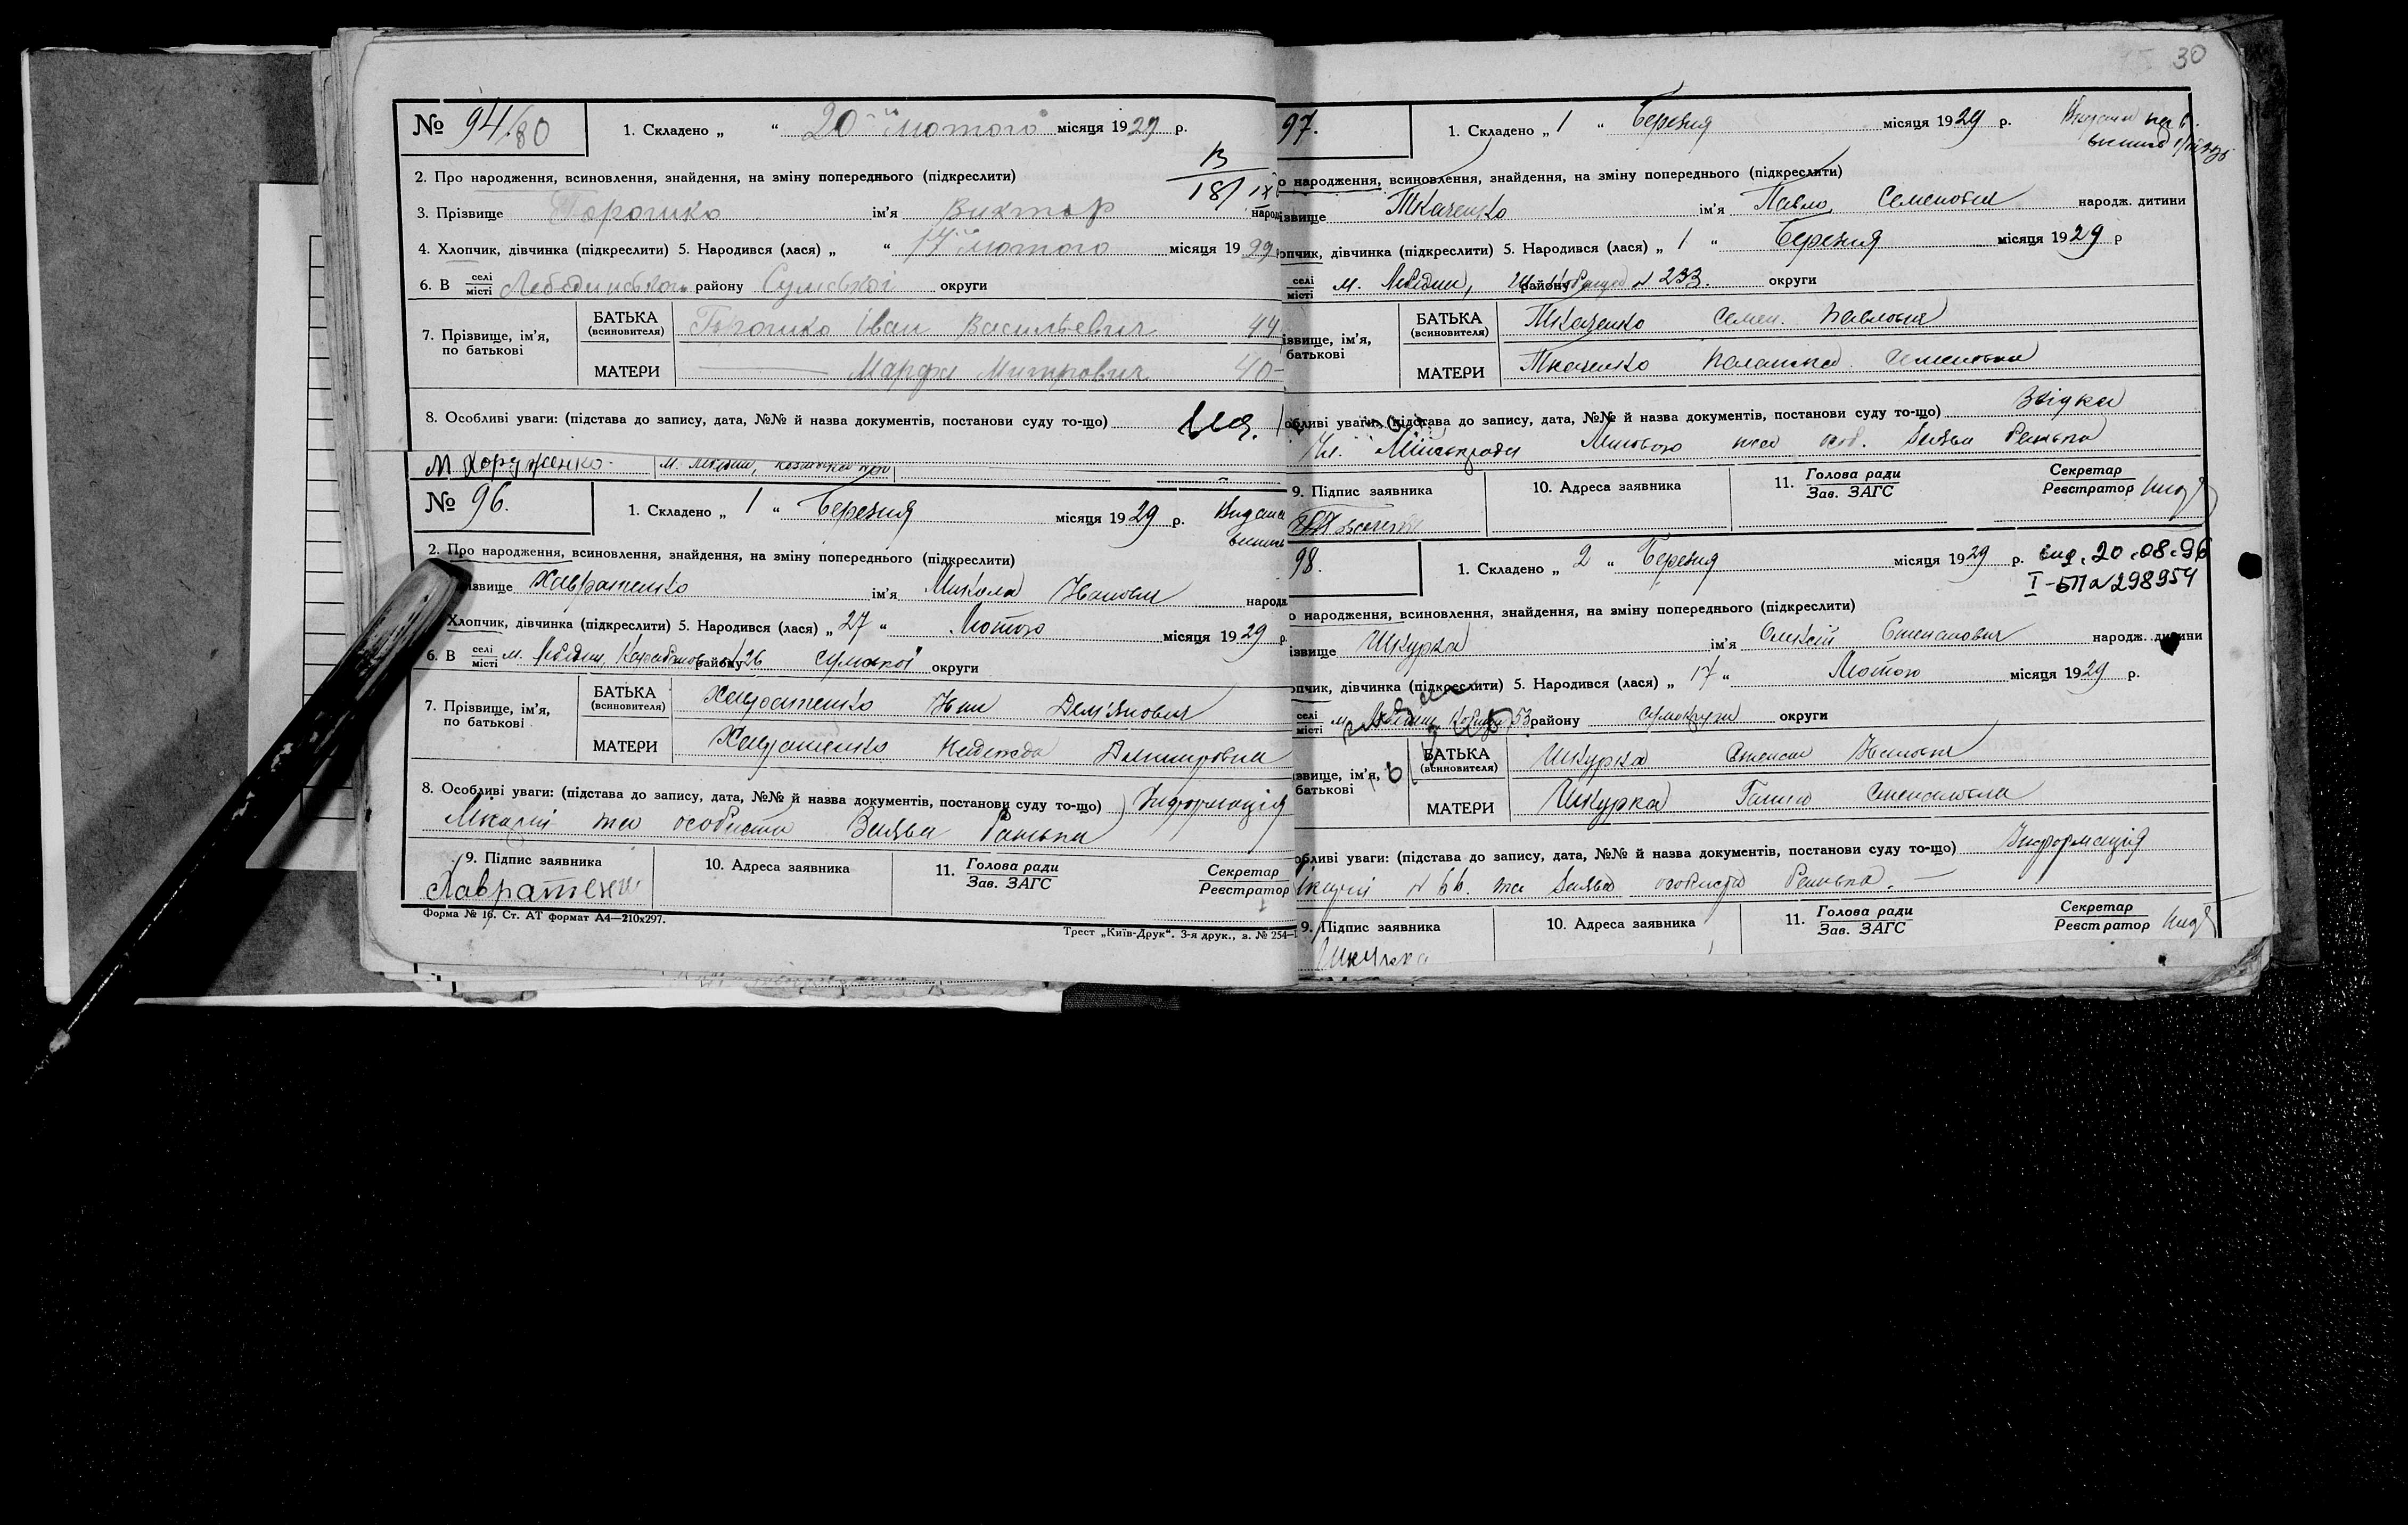 30
№ 94/80 1. Складено „ “ 20 лютого місяця 1929 р.
2. Про народження, всиновлення, знайдення, на зміну попереднього (підкреслити)
В
18/IX
3. Прізвище Торошко ім'я Виктор народ
4. Хлопчик, дівчинка (підкреслити) 5. Народився (лася) „ “ 17 лютого місяця 1929
6. В селі місті Лебединського району Сумської округи
7. Прізвище, ім'я, по батькові
БАТЬКА (всиновителя) Торошко Іван Васильевич 44
МАТЕРИ — Марфа Митровна 40
8. Особливі уваги: (підстава до запису, дата, №№ й назва документів, постанови суду то-що)
М Хоруженко м. Лебедин,
№ 96. 1. Складено „ 1 “ Березня місяця 1929 р. Видана
2. Про народження, всиновлення, знайдення, на зміну попереднього (підкреслити)
звище Хавратенко ім'я Микола Іванович народж
Хлопчик, дівчинка (підкреслити) 5. Народився (лася) „ 27 “ Лютого місяця 1929 р.
6. В селі місті м. Лебедин, району 26 Сумської округи
7. Прізвище, ім'я, по батькові
БАТЬКА (всиновителя) Хавратенко Іван Дем'янович
МАТЕРИ Хавратенко Надежда
8. Особливі уваги: (підстава до запису, дата, №№ й назва документів, постанови суду то-що) Інформація
Лікарні та особиста Заява Батька
9. Підпис заявника 10. Адреса заявника 11. Голова ради Зав. ЗАГС Секретар Реєстратор
Хавратенко
Форма № 16. Ст. АТ формат А4—210х297.
Трест „Київ-Друк“. 3-я друк., з. № 254—
97. 1. Складено „ 1 “ Березня місяця 1929 р.
о народження, всиновлення, знайдення, на зміну попереднього (підкреслити)
ізвище Ткаченко ім'я Павло Семенович народж. дитини
опчик, дівчинка (підкреслити) 5. Народився (лася) „ 1 “ Березня місяця 1929 р
селі місті м. Лебедин, району № 233. округи
ізвище, ім'я, батькові
БАТЬКА (всиновителя) Ткаченко Семен Павлович
МАТЕРИ Ткаченко Палашка Семеновна
обливі уваги: (підстава до запису, дата, №№ й назва документів, постанови суду то-що) Звідка
та особ. Заява Батька
9. Підпис заявника 10. Адреса заявника 11. Голова ради Зав. ЗАГС Секретар Реєстратор
98. 1. Складено „ 2 “ Березня місяця 1929 р. вид. 20.08.96
І-БП № 298954
о народження, всиновлення, знайдення, на зміну попереднього (підкреслити)
ізвище Шкурка ім'я Олексій Степанович народж. дитини
опчик, дівчинка (підкреслити) 5. Народився (лася) „ 17 “ Лютого місяця 1929 р.
селі місті м. Лебедин 53 району Сумокруги округи
звище, ім'я, батькові
БАТЬКА (всиновителя) Шкурка Степан Іванович
МАТЕРИ Шкурка Ганна Степановна
обливі уваги: (підстава до запису, дата, №№ й назва документів, постанови суду то-що) Інформація
ікарні № 66. та Заява особиста Батька. —
9. Підпис заявника 10. Адреса заявника 11. Голова ради Зав. ЗАГС Секретар Реєстратор
Шкурка